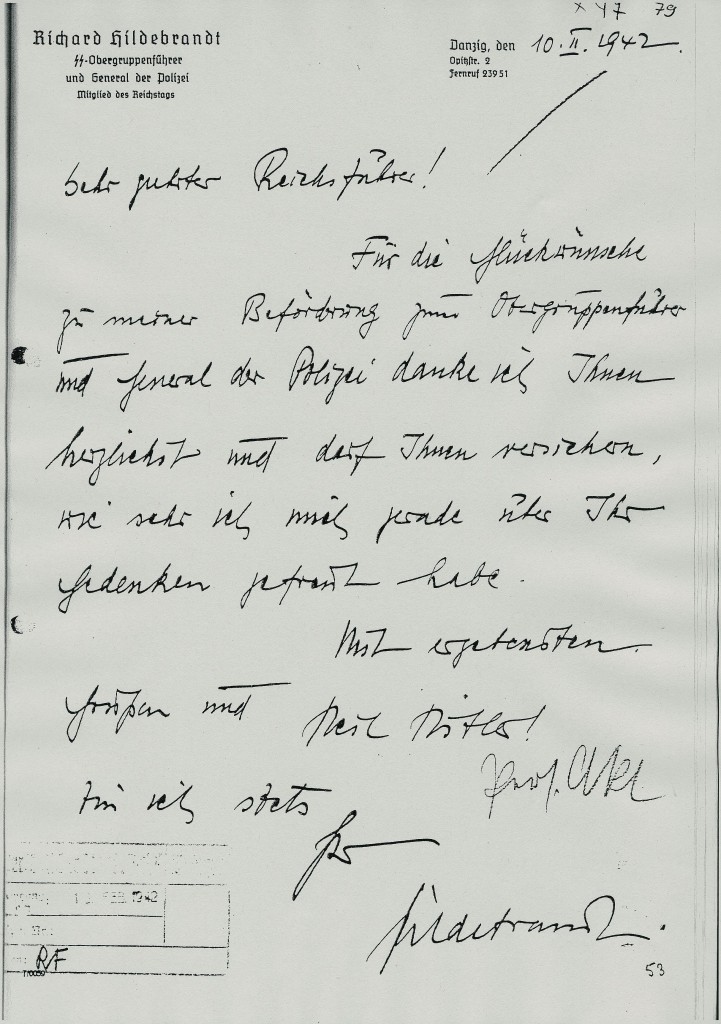 79
Richard Hildebrandt
SS-Obergruppenführer
und General der Polizei
Mitglied des Reichstags
Danzig, den 10.II.1942.
Opitzstr. 2
Fernruf 23951
Sehr geehrter Reichsführer!
Für die Glückwünsche
zu meiner Beförderung zum Obergruppenführer
und General der Polizei danke ich Ihnen
herzlichst und darf Ihnen versichern,
wie sehr ich mich gerade über Ihr
Gedenken gefreut habe.
Mit ergebensten
Grüßen und Heil Hitler!
bin ich stets
Ihr
Hildebrandt.
FEB. 1942
RF
53